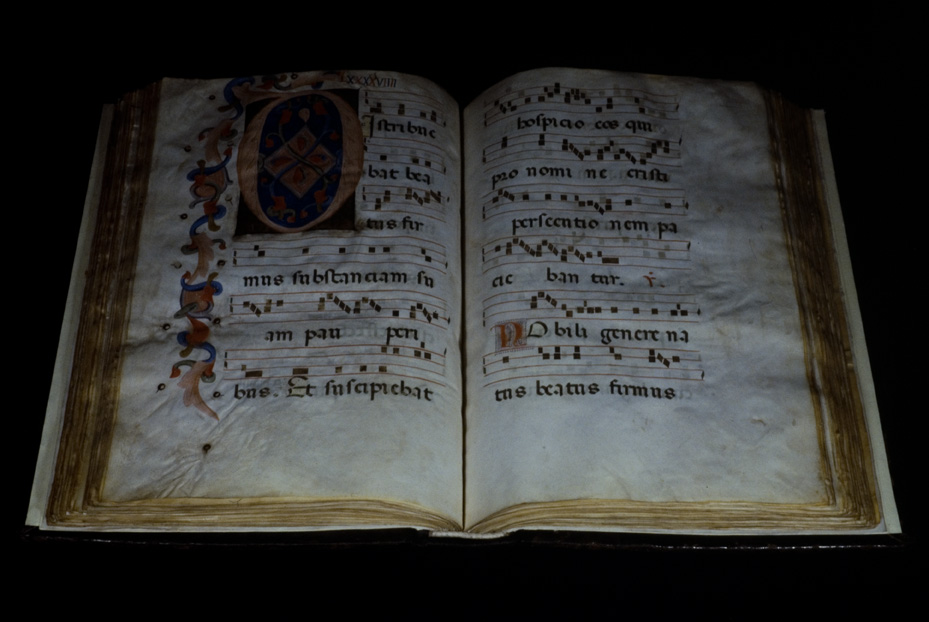 lxxxxviiii
Distribue
bat bea
tus fir
mus substanciam su
am pau peri
bus. Et suscipiebat
hospicio eos qui
pro nomi ne cristi
persecutio nem pa
cie ban tur. ℣.
NObili genere na
tus beatus firmus